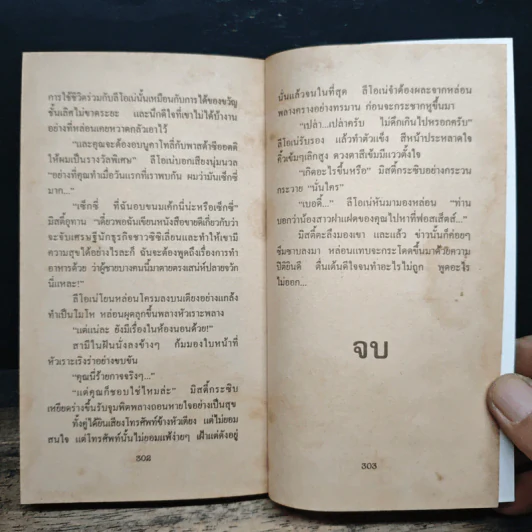 การใช้ชีวิตร่วมกับลีโอเน่นั้นเหมือนกับการได้ของขวัญ
ชั้นเลิศไม่ขาดระยะ และนึกดีใจที่เขาไม่ได้บ้างาน
อย่างที่หล่อนเคยหวาดกลัวเอาไว้
"และคุณจะต้องอบนูกาโทลี่กับพาสต้าซีออดดิ
ให้ผมเป็นรางวัลพิเศษ" ลีโอเน่บอกเสียงนุ่มนวล
"อย่างที่คุณทำเมื่อวันแรกที่เราพบกัน มันเซ็กซี่
มาก..."
"เซ็กซี่ ที่ฉันอบขนมเค้กนี่น่ะหรือเซ็กซี่"
มิสตี้อุทาน "เดี๋ยวพอฉันเขียนหนังสือขายดีเกี่ยวกับว่า
จะจับเศรษฐีนักธุรกิจชาวซิซิเลี่ยนและทำให้เขามี
ความสุขได้อย่างไรละก็ ฉันจะต้องพูดถึงเรื่องการทำ
อาหารด้วย ว่าผู้ชายบางคนนี้มาตายตรงเสน่ห์ปลายจวัก
นี่แหละ!"
ลีโอเน่โยนหล่อนโครมลงบนเตียงอย่างแกล้ง
ทำเป็นโมโห หล่อนผุดลุกขึ้นพลางหัวเราะพลาง
"แต่แน่ละ ยังมีเรื่องในห้องนอนด้วย!"
สามีในฝันนั่งลงข้างๆ ก้มมองใบหน้าที่
หัวเราะเริงร่าอย่างขบขัน
"คุณนี่ร้ายกาจจริงๆ..."
"แต่คุณก็ชอบใช่ไหมล่ะ" มิสตี้กระซิบ
เหยียดร่างขึ้นรับจุมพิตพลางถอนหายใจอย่างเป็นสุข
ทั้งคู่ได้ยินเสียงโทรศัพท์ข้างหัวเตียง แต่ไม่ยอม
สนใจ แต่โทรศัพท์นั้นไม่ยอมแพ้ง่ายๆ เฝ้าแต่ดังอยู่
302
นั่นแล้วจนในที่สุด ลีโอเน่จำต้องผละจากหล่อน
พลางครางอย่างทรมาน ก่อนจะกระชากหูขึ้นมา
"เปล่า...เปล่าครับ ไม่ดึกเกินไปหรอกครับ"
ลีโอเน่รับรอง แล้วทำตัวแข็ง สีหน้าประหลาดใจ
คิ้วเข้มๆเลิกสูง ดวงตาสีเข้มมีแววตั้งใจ
"เกิดอะไรขึ้นหรือ" มิสตี้กระซิบอย่างกระวน
กระวาย "นั่นใคร"
"เบอตี้..." ลีโอเน่หันมามองหล่อน "ท่าน
บอกว่าน้องสาวฝาแฝดของคุณไปหาที่ฟอสเส็ตส์..."
มิสตี้ตะลึงมองเขา และแล้ว ข่าวนั้นก็ค่อยๆ
ซึมซาบลงมา หล่อนแทบจะกระโดดขึ้นมาด้วยความ
ปิติยินดี ตื่นเต้นดีใจจนทำอะไรไม่ถูก พูดอะไร
ไม่ออก...
จบ
303